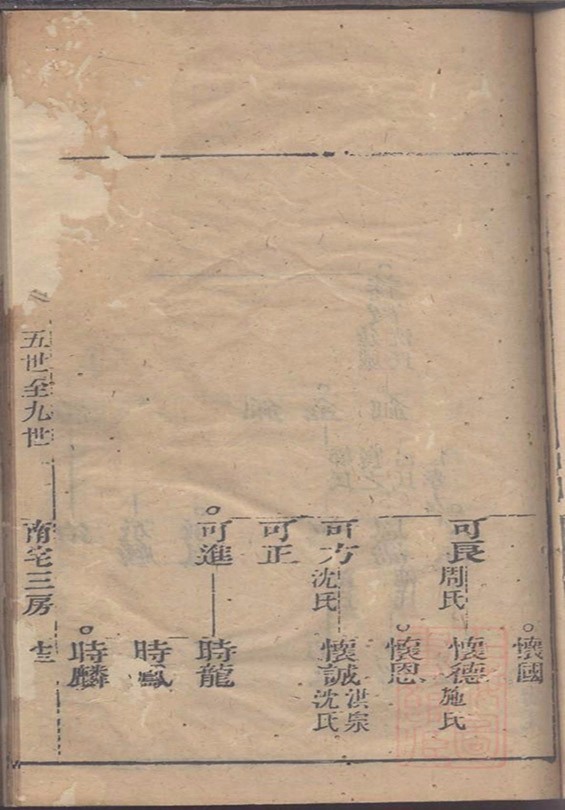 懷國
可良
周氏
懷德
施氏
懷恩
可方
沈氏
懷誠
洪泉
沈氏
可正
可進
時龍
時鳳
時麟
五世至九世
南宅三房